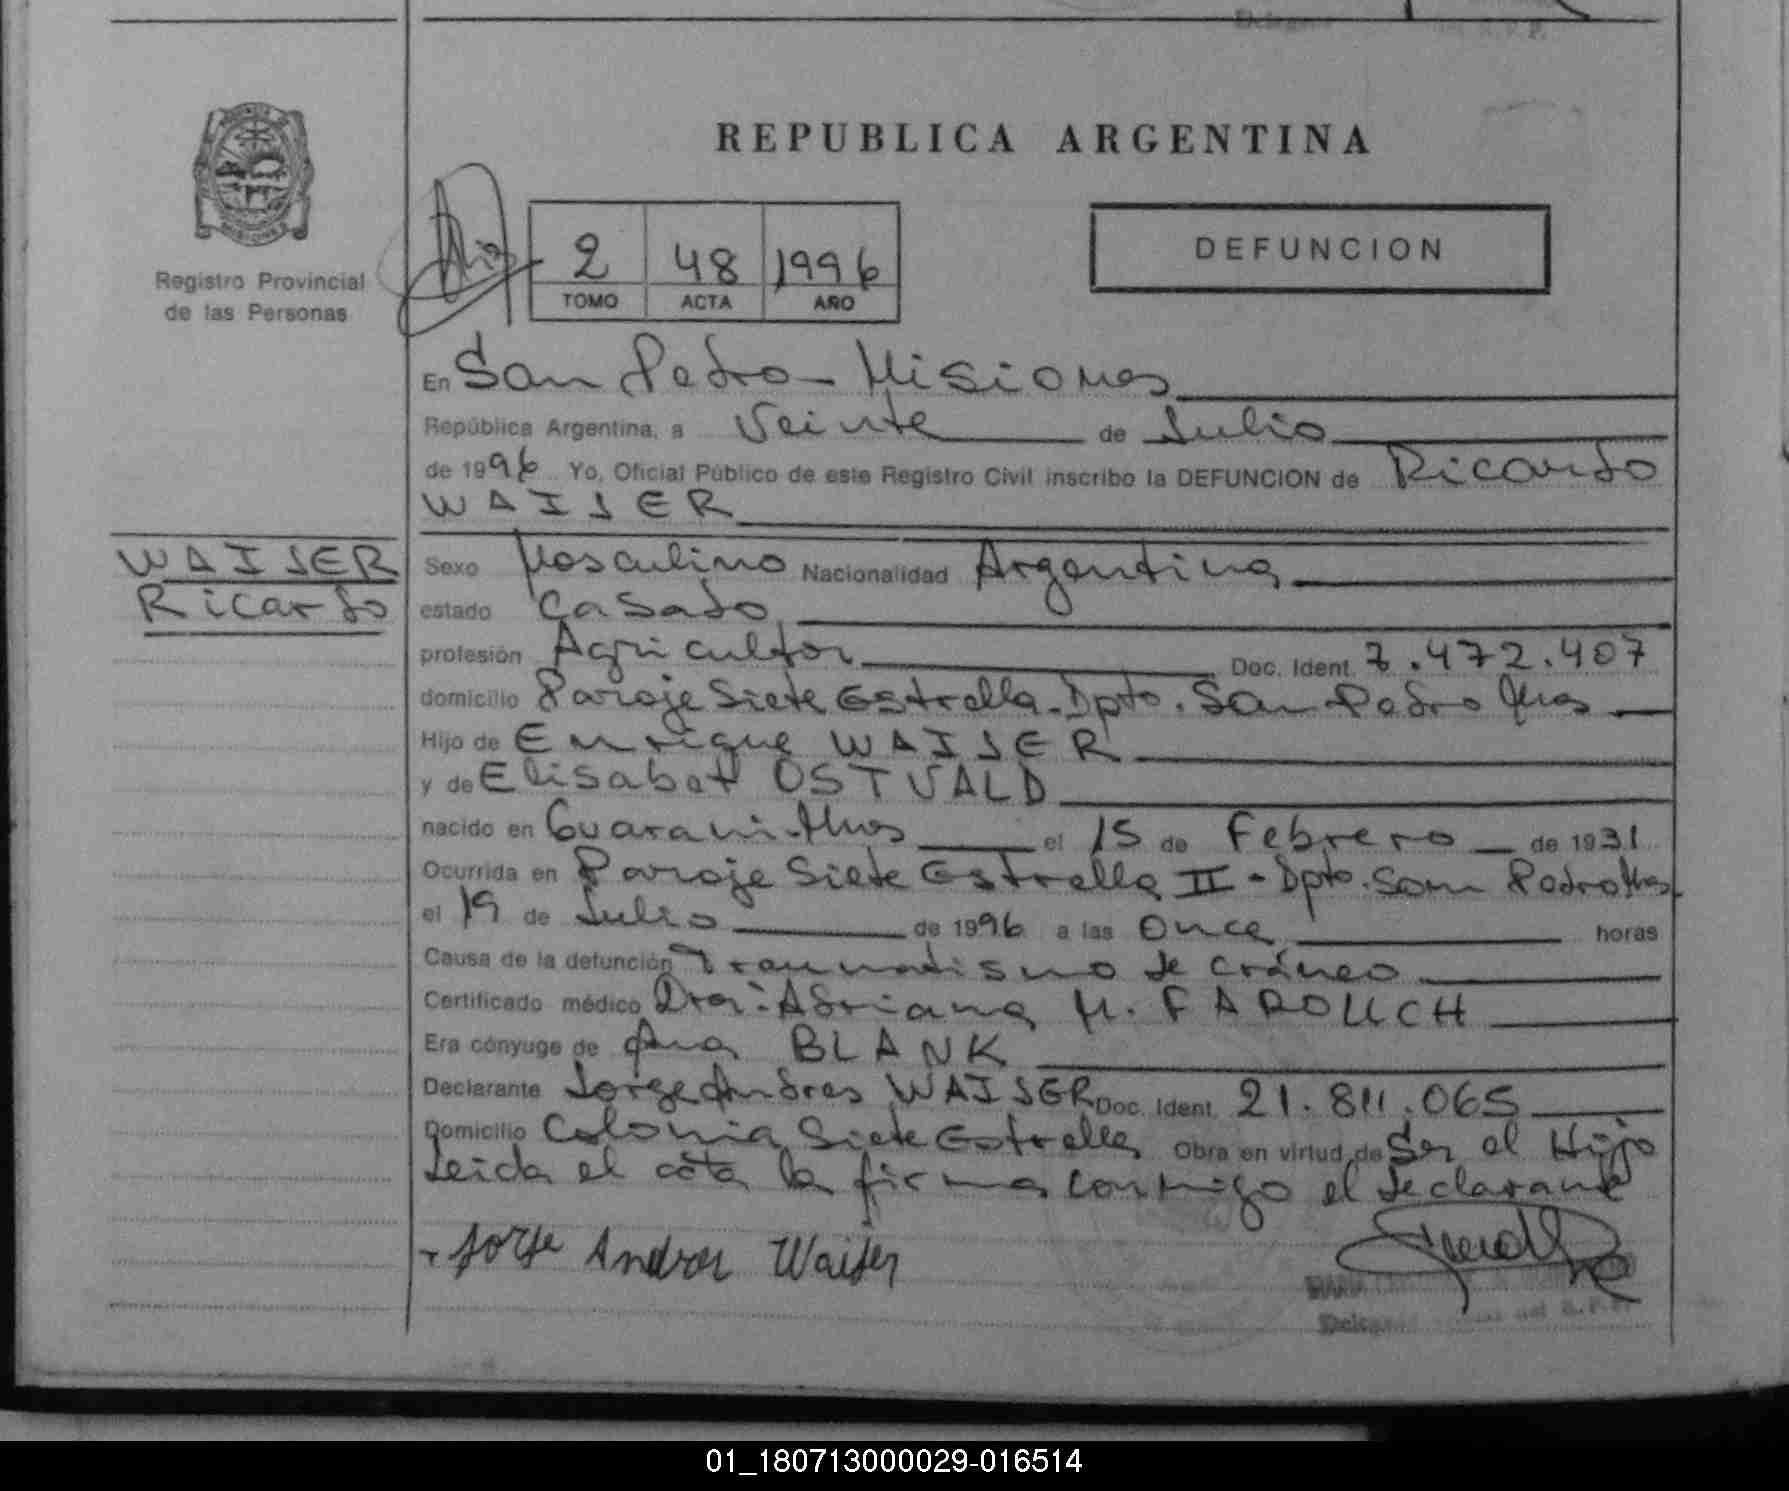 REPUBLICA ARGENTINA
Registro Provincial
de las Personas
2 48 1996
TOMO ACTA AÑO
DEFUNCION
En San Pedro - Misiones
República Argentina, a Veinte de Julio
de 1996 Yo, Oficial Público de este Registro Civil inscribo la DEFUNCION de Ricardo
WAISER
WAISER
Ricardo
Sexo Masculino Nacionalidad Argentina
estado Casado
profesión Agricultor Doc. Ident. 7.472.407
domicilio Paraje Siete Estrella - Dpto. San Pedro Mnes
Hijo de Enrique WAISER
y de Elisabet OSTVALD
nacido en Guarani - Mnes el 15 de Febrero de 1931
Ocurrida en Paraje Siete Estrella II - Dpto. San Pedro Mnes
el 19 de Julio de 1996 a las Once horas
Causa de la defunción Traumatismo de cráneo
Certificado médico Dra: Adriana M. FAROUCH
Era cónyuge de Ana BLANK
Declarante Jorge Andres WAISER Doc. Ident. 21.811.065
Domicilio Colonia Siete Estrella Obra en virtud de Ser el Hijo
Leida el acta la firma conmigo el declarante
Jorge Andres Waiser
01_180713000029-016514